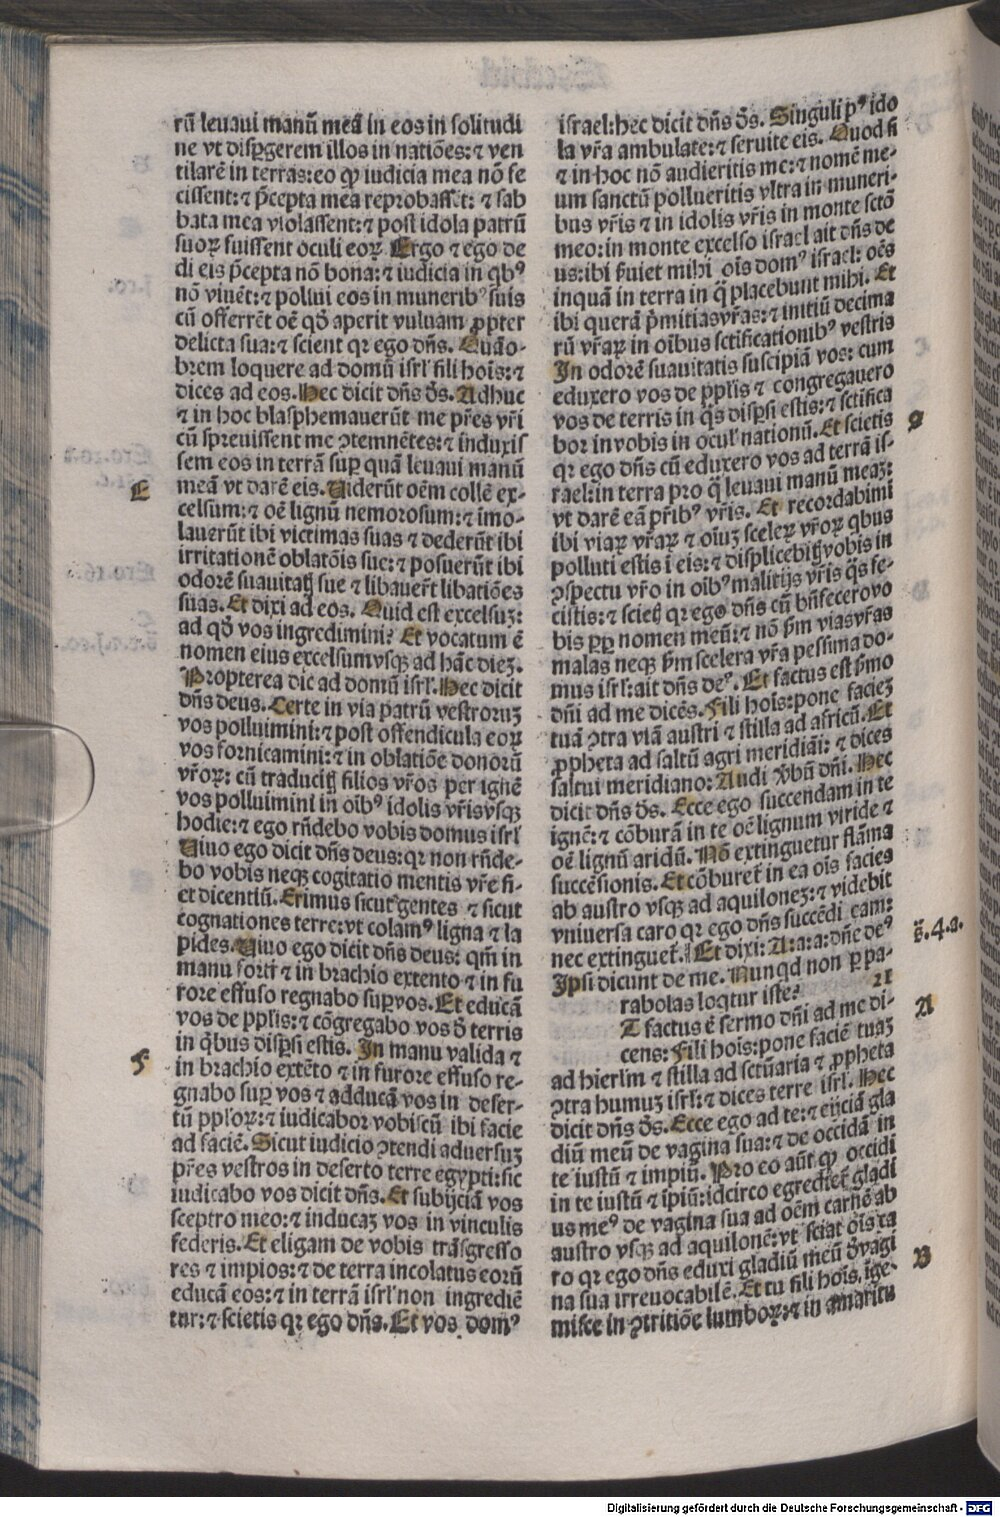 rū leuaui manū meā in eos in solitudi
ne vt disꝑgerem illos in natiōes: ⁊ ven
tilarē in terras: eo ꝙ iudicia mea nō fe
cissent: ⁊ p̄cepta mea reprobassēt: ⁊ sab
bata mea violassent: ⁊ post idola patrū
suoꝝ fuissent oculi eoꝝ. Ergo ⁊ ego de
di eis p̄cepta nō bona: ⁊ iudicia in qbꝰ
nō viuēt: ⁊ pollui eos in muneribꝰ suis
cū offerrēt oē qḋ aperit vuluam ꝓpter
delicta sua: ⁊ scient qꝛ ego dn̄s. Quāo-
brem loquere ad domū isrl' fili hoīs: ⁊
dices ad eos. Hec dicit dn̄s ds̄. Adhuc
⁊ in hoc blasphemauerūt me pr̄es vr̄i
cū spreuissent me ꝯtemnētes: ⁊ induxis
sem eos in terrā suꝑ quā leuaui manū
E
meā vt darē eis. Uiderūt oēm collē ex-
celsum: ⁊ oē lignū nemorosum: ⁊ imo-
lauerūt ibi victimas suas ⁊ dederūt ibi
irritationē oblatōis sue: ⁊ posuerūt ibi
odorē suauitatꝭ sue ⁊ libauer̄t libatiōes
suas. Et dixi ad eos. Quid est excelsuꝫ:
ad qḋ vos ingredimini? Et vocatum ē
nomen eius excelsum vsqꝫ ad hāc dieꝫ.
Propterea dic ad domū isrl'. Hec dicit
dn̄s deus. Certe in via patrū vestroruꝫ
vos polluimini: ⁊ post offendicula eoꝝ
vos fornicamini: ⁊ in oblatiōe donorū
vr̄oꝝ: cū traducitꝭ filios vr̄os per ignē
vos polluimini in oībꝰ idolis vr̄is vsqꝫ
hodie: ⁊ ego rn̄debo vobis domus isrl'
Uiuo ego dicit dn̄s deus: qꝛ non rn̄de-
bo vobis neqꝫ cogitatio mentis vr̄e fi-
et dicentiū. Erimus sicut gentes ⁊ sicut
cognationes terre: vt colamꝰ ligna ⁊ la
pides. Uiuo ego dicit dn̄s deus: qm̄ in
manu forti ⁊ in brachio extento ⁊ in fu
rore effuso regnabo suꝑ vos. Et educā
vos de pplis: ⁊ cōgregabo vos d̄ terris
in qbus disꝑsi estis. In manu valida ⁊
F
in brachio extēto ⁊ in furore effuso re-
gnabo suꝑ vos ⁊ adducā vos in deser-
tū pploꝝ: ⁊ iudicabor vobiscū ibi facie
ad faciē. Sicut iudicio ꝯtendi aduersuꝫ
pr̄es vestros in deserto terre egypti: sic
iudicabo vos dicit dn̄s. Et subijciā vos
sceptro meo: ⁊ inducaꝫ vos in vinculis
federis. Et eligam de vobis trāsgresso
res ⁊ impios: ⁊ de terra incolatus eorū
educā eos: ⁊ in terrā isrl' non ingrediē
tur: ⁊ scietis qꝛ ego dn̄s. Et vos domꝰ
israel: hec dicit dn̄s ds̄. Singuli pꝰ ido
la vr̄a ambulate: ⁊ seruite eis. Quod si
⁊ in hoc nō audieritis me: ⁊ nomē me-
um sanctū pollueritis vltra in muneri-
bus vr̄is ⁊ in idolis vr̄is in monte sctō
meo: in monte excelso israel ait dn̄s de
us: ibi ẜuiet mihi oīs domꝰ israel: oēs
inquā in terra in q̄ placebunt mihi. Et
ibi querā p̄mitias vr̄as: ⁊ initiū decima
rū vr̄aꝝ in oībus sctificationibꝰ vestris
In odorē suauitatis suscipiā vos: cum
eduxero vos de pplis ⁊ congregauero
vos de terris in q̄s disꝑsi estis: ⁊ sctifica
G
bor in vobis in ocul' nationū. Et scietis
qꝛ ego dn̄s cū eduxero vos ad terrā is-
rael: in terra pro q̄ leuaui manū meaꝫ:
vt darē eā pr̄ibꝰ vr̄is. Et recordabimi
ibi viaꝝ vr̄aꝝ ⁊ oīuꝫ sceleꝝ vr̄oꝝ qbus
polluti estis ī eis: ⁊ displicebitꝭ vobis in
ꝯspectu vr̄o in oībꝰ malitijs vr̄is q̄s fe-
cistis: ⁊ scietꝭ qꝛ ego dn̄s cū bn̄fecero vo
bis ꝓp nomen meū: ⁊ nō ẜm vias vr̄as
malas neqꝫ ẜm scelera vr̄a pessima do-
mus isrl': ait dn̄s deꝰ. Et factus est ẜmo
dn̄i ad me dicēs. Fili hoīs: pone facieꝫ
tuā ꝯtra viā austri ⁊ stilla ad africū. Et
ꝓpheta ad saltū agri meridiāi: ⁊ dices
saltui meridiano: Audi v̄bū dn̄i. Hec
dicit dn̄s ds̄. Ecce ego succendam in te
ignē: ⁊ cōburā in te oē lignum viride ⁊
oē lignū aridū. Nō extinguetur flāma
succēsionis. Et cōburet̄ in ea oīs facies
ab austro vsqꝫ ad aquiloneꝫ: ⁊ videbit
vniuersa caro qꝛ ego dn̄s succēdi eam:
nec extinguet̄. Et dixi: A: a: a: dn̄e deꝰ
g̅.4.a.
Ipsi dicunt de me. Nunqd non ꝑ pa-
rabolas loqtur iste? 21
T factus ē sermo dn̄i ad me di-
A
cens: Fili hoīs: pone faciē tuaꝫ
ad hierl'm ⁊ stilla ad sctūaria ⁊ ꝓpheta
ꝯtra humuꝫ isrl': ⁊ dices terre isrl'. Hec
dicit dn̄s ds̄. Ecce ego ad te: ⁊ eijciā gla
diū meū de vagina sua: ⁊ de occidā in
te iustū ⁊ impiū. Pro eo aūt ꝙ occidi
in te iustū ⁊ īpiū: idcirco egrediet̄ gladi
us meꝰ de vagina sua ad oēm carnē ab
austro vsqꝫ ad aquilonē: vt sciat oīs ca
ro qꝛ ego dn̄s eduxi gladiū meū d̄ vagi
B
na sua irreuocabilē. Et tu fili hoīs, ige-
misce in ꝯtritiōe lumboꝝ: ⁊ in amaritu
Digitalisierung gefördert durch die Deutsche Forschungsgemeinschaft - DFG